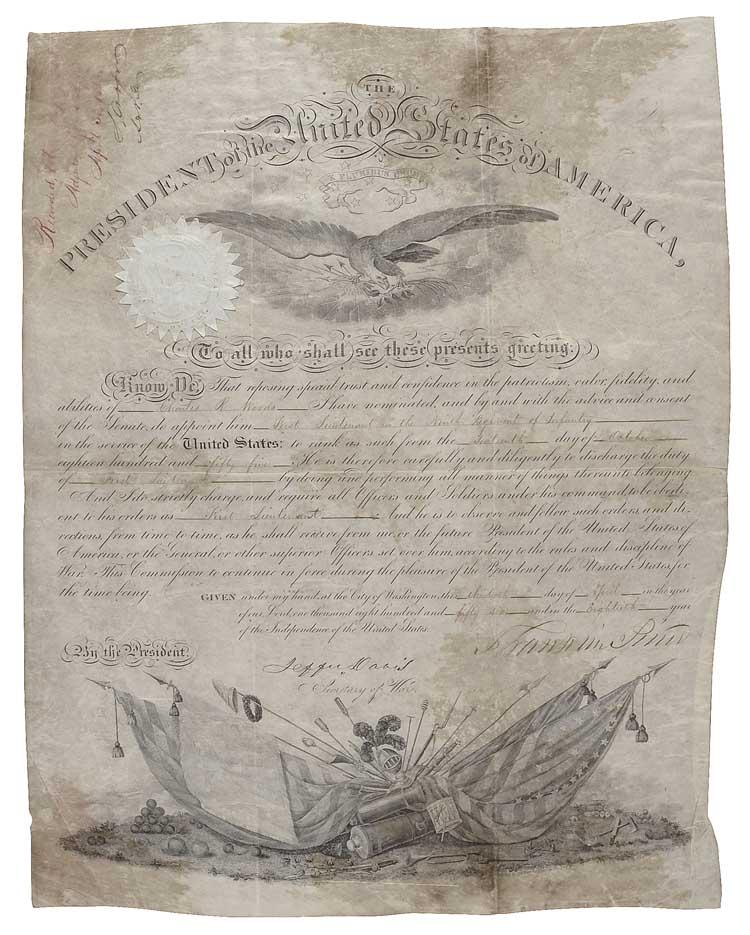 THE
PRESIDENT of the United States of AMERICA,
E PLURIBUS UNUM
To all who shall see these presents greeting:
Know Ye, That reposing special trust and confidence in the patriotism, valor, fidelity, and
abilities of Charles R. Woods I have nominated, and by and with the advice and consent
of the Senate, do appoint him First Lieutenant in the Ninth Regiment of Infantry
in the service of the United States: to rank as such from the day of October
eighteen hundred and fifty five. He is therefore carefully and diligently to discharge the duty
of First Lieutenant by doing and performing all manner of things thereunto belonging.
And I do strictly charge, and require all Officers and Soldiers under his command to be obedi-
ent to his orders as First Lieutenant And he is to observe and follow such orders, and di-
rections, from time to time, as he shall receive from me, or the future President of the United States of
America, or the General, or other superior Officers set over him, according to the rules and discipline of
War. This Commission to continue in force during the pleasure of the President of the United States, for
the time being.
GIVEN under my hand, at the City of Washington, this day of April in the year
of our Lord, one thousand eight hundred and fifty six and in the Eightieth year
of the Independence of the United States.
By the President.
Franklin Pierce
Jeffn Davis
Secretary of War.